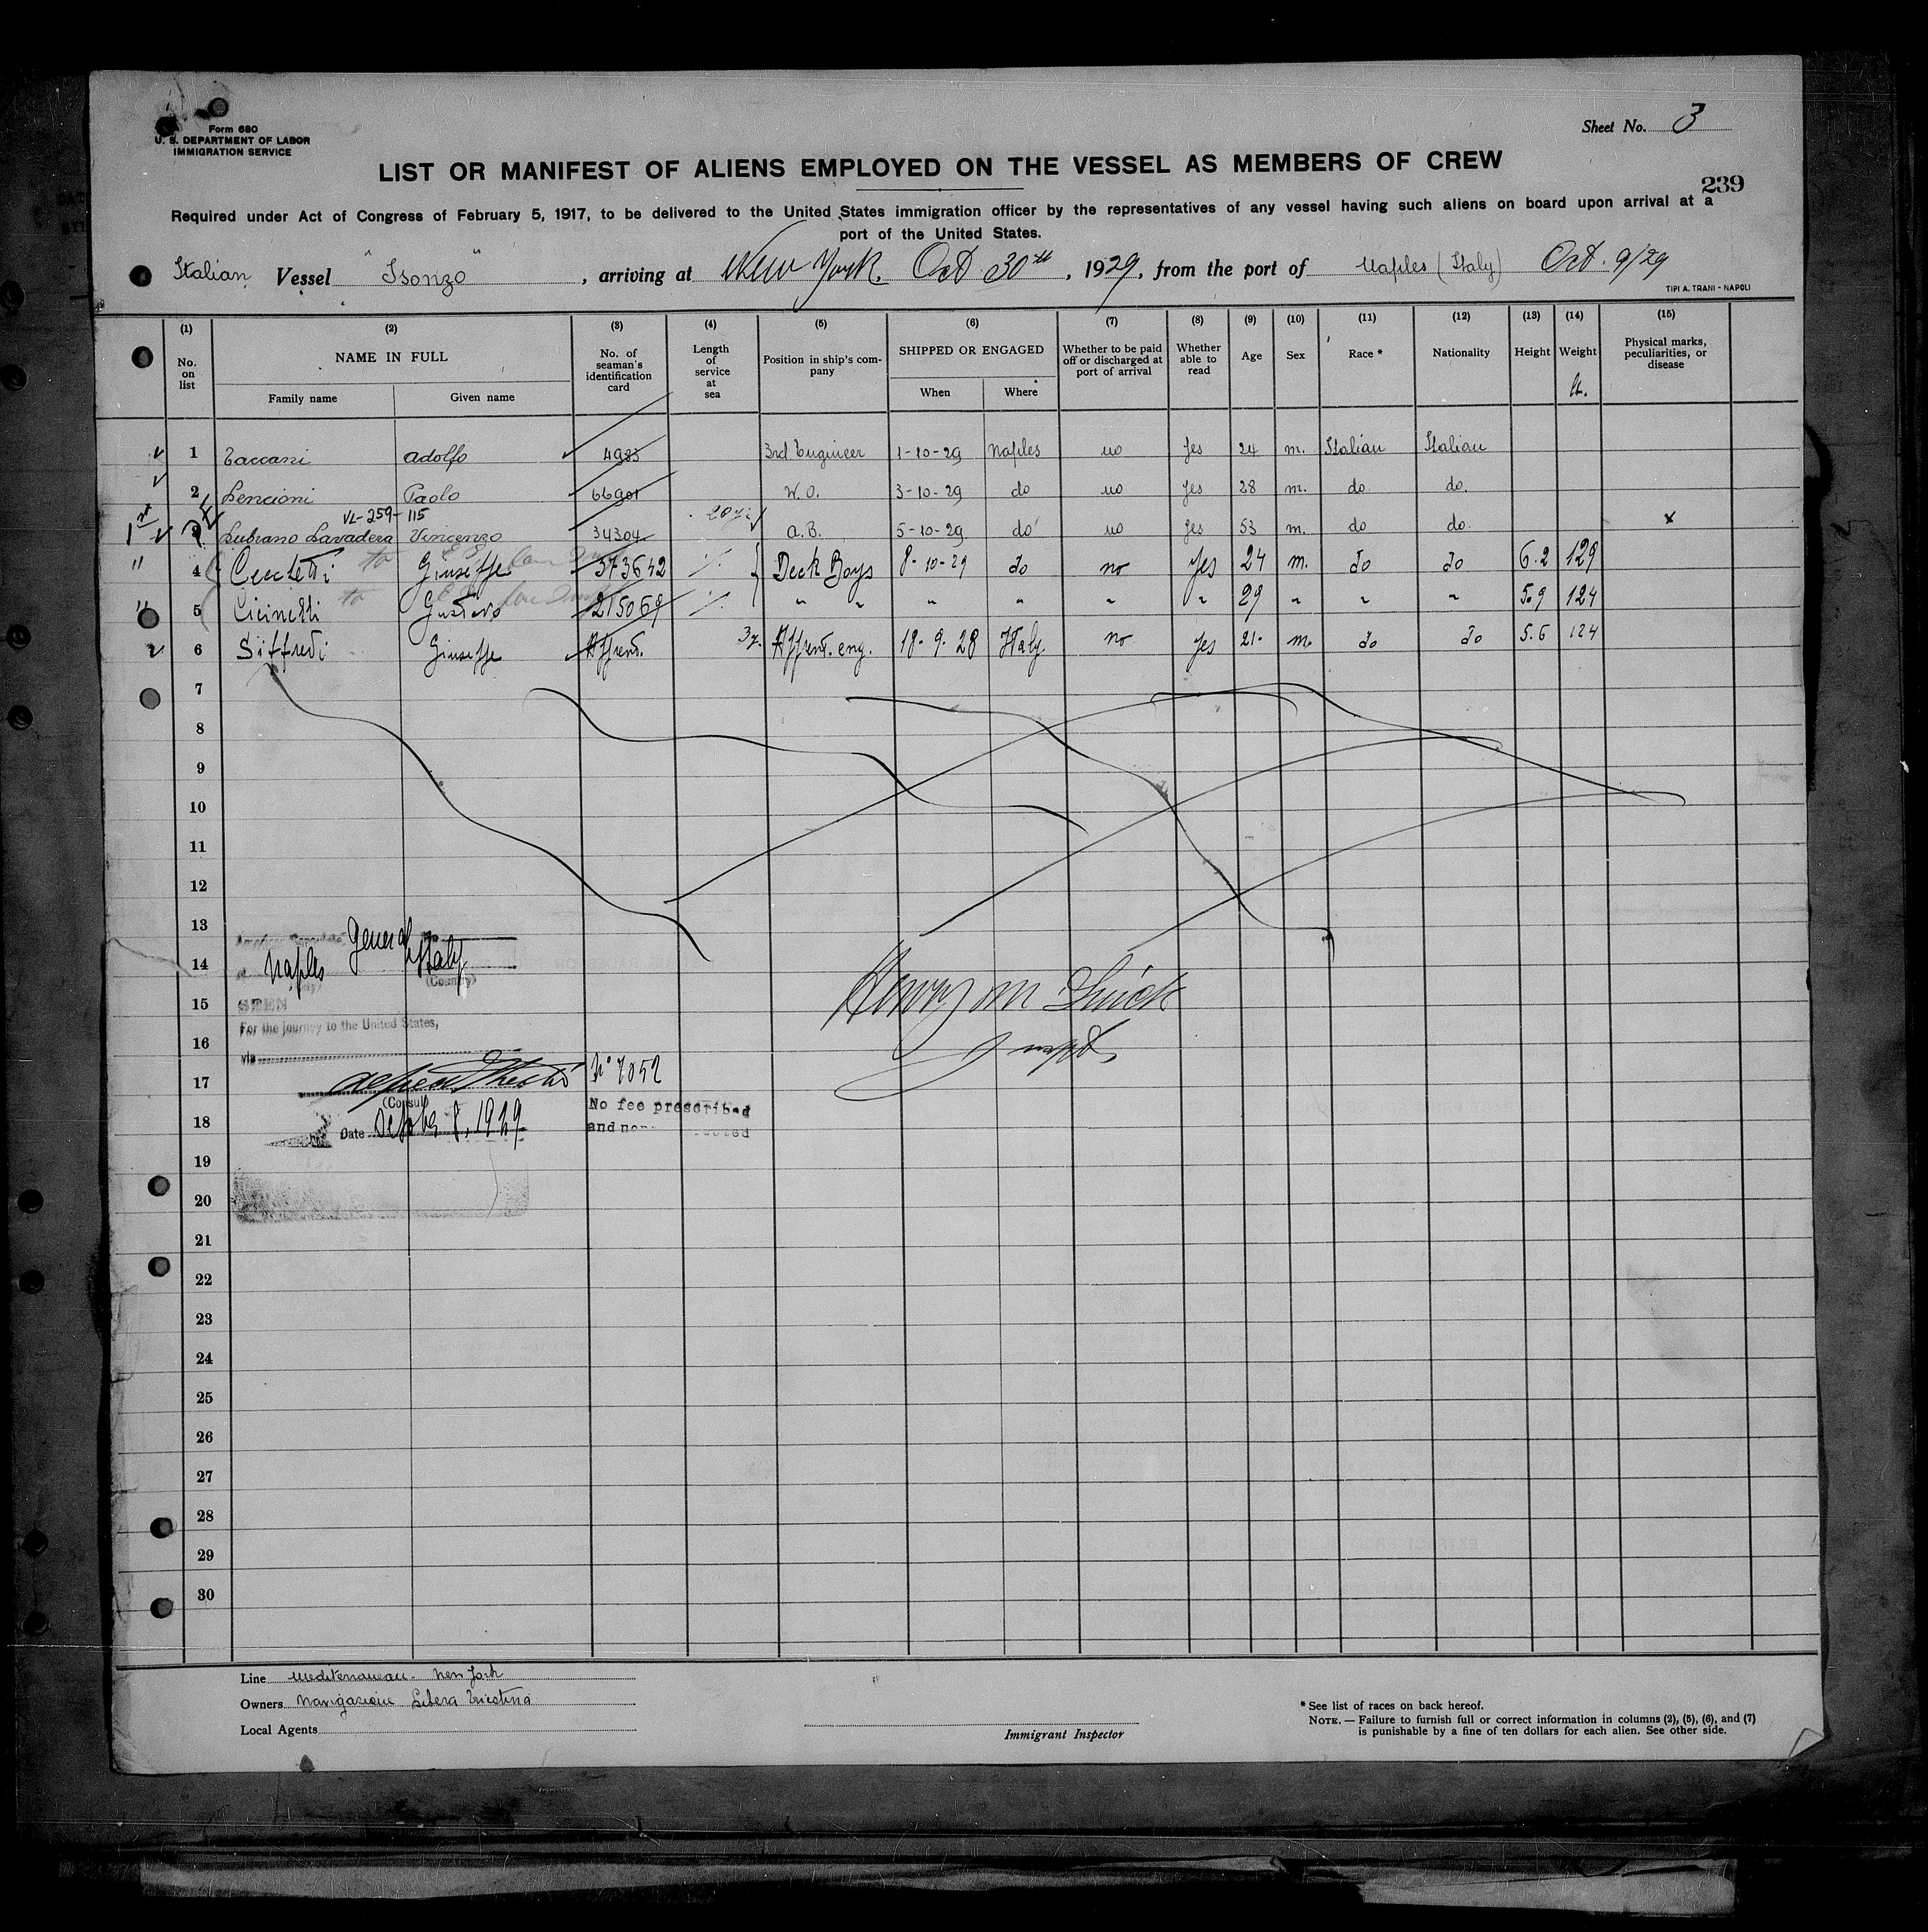 Form 680
U. S. DEPARTMENT OF LABOR
IMMIGRATION SERVICE
Sheet No. 3
LIST OR MANIFEST OF ALIENS EMPLOYED ON THE VESSEL AS MEMBERS OF CREW
239
Required under Act of Congress of February 5, 1917, to be delivered to the United States immigration officer by the representatives of any vessel having such aliens on board upon arrival at a
port of the United States.
Italian Vessel "Isonzo", arriving at New York. Oct 30th, 1929, from the port of Naples (Italy) Oct. 9/29
TIPI A. TRANI - NAPOLI
(1) No. on list
(2) NAME IN FULL
Family name Given name
(3) No. of seaman's identification card
(4) Length of service at sea
(5) Position in ship's company
(6) SHIPPED OR ENGAGED
When Where
(7) Whether to be paid off or discharged at port of arrival
(8) Whether able to read
(9) Age
(10) Sex
(11) Race *
(12) Nationality
(13) Height
(14) Weight
(15) Physical marks, peculiarities, or disease
1 Zaccani Adolfo 4983 3rd Engineer 1-10-29 Naples no Yes 24 m. Italian Italian
2 Lencioni Paolo 66901 W.O. 3-10-29 do no Yes 28 m. do do.
VL-259-115
1st 3 Lubrano Lavadera Vincenzo 34304 20 y. A.B. 5-10-29 do no Yes 53 m. do do. x
" 4 Cecchetti Giuseppe 373642 Deck Boys 8-10-29 do no Yes 24 m. do do 6.2 129
" 5 Cicinelli Gustavo 215069 " " " " " " 29 " " " 5.9 124
6 Siffredi Giuseppe Apprent. 3 y. Apprent. eng. 18.9.28 Italy. no Yes 21. m. do do 5.6 124
7
8
9
10
11
12
13
14
15
16
17
18
19
20
21
22
23
24
25
26
27
28
29
30
General
Naples Italy
(Country)
SEEN
For the journey to the United States,
via
Nº 7052
(Consul)
Date October 8, 1929
No fee prescribed
and none
Henry M
Inspt,
Line Mediterranean - New York
Owners Navigazione Libera Triestina
Local Agents
Immigrant Inspector
* See list of races on back hereof.
NOTE. — Failure to furnish full or correct information in columns (2), (5), (6), and (7)
is punishable by a fine of ten dollars for each alien. See other side.